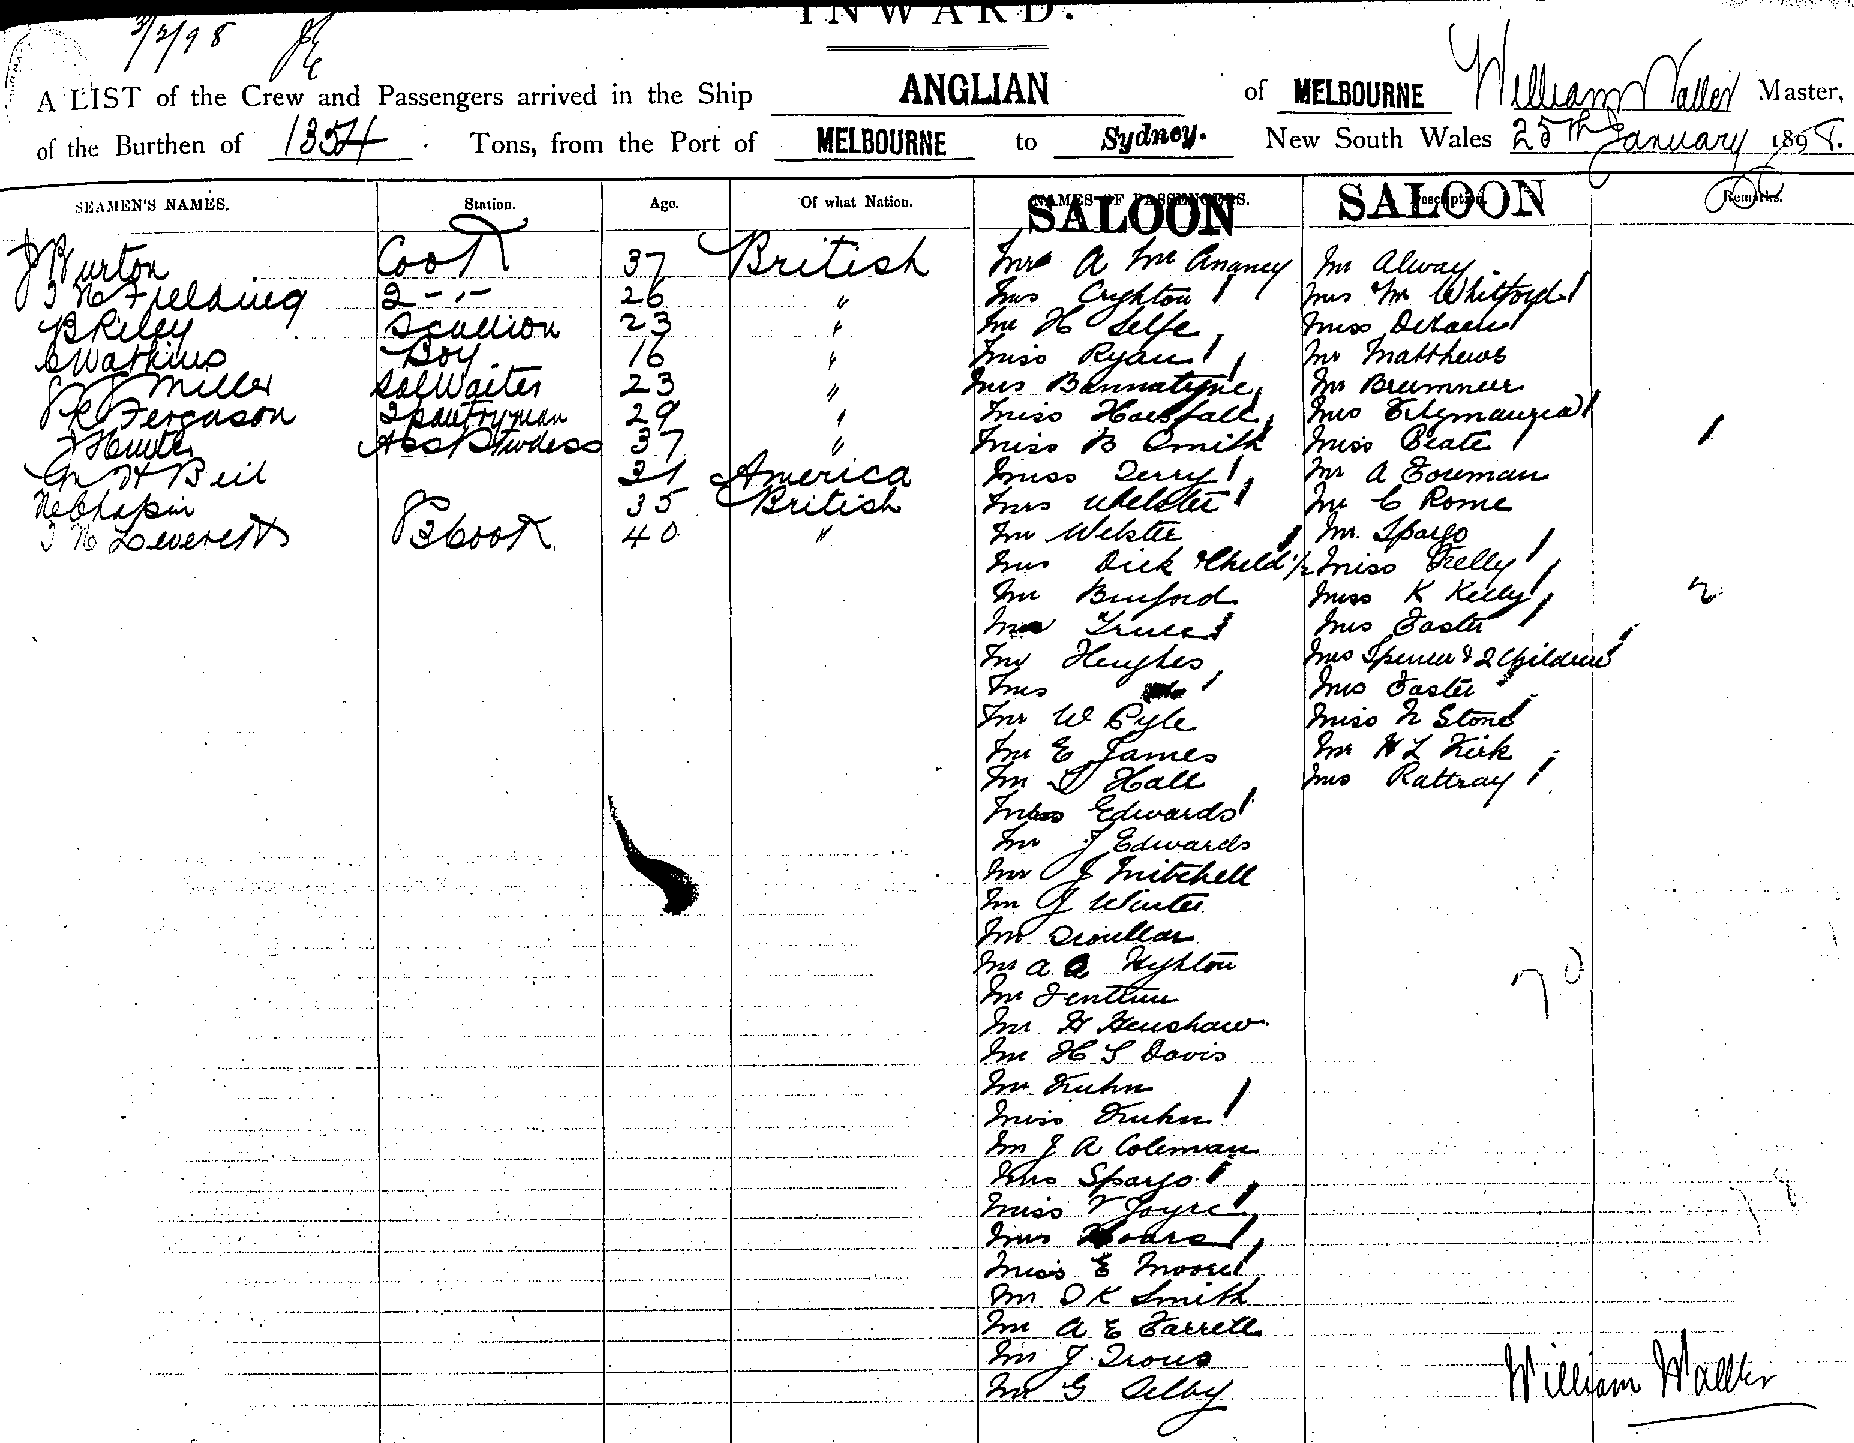 INWARD.
3/2/98
A LIST of the Crew and Passengers arrived in the Ship ANGLIAN of MELBOURNE William Waller Master,
of the Burthen of 1354 Tons, from the Port of MELBOURNE to Sydney. New South Wales 25th January 1898.
SEAMEN'S NAMES. Station. Age. Of what Nation. NAMES OF PASSENGERS. Description. Remarks.
SALOON SALOON
J Burton Cook 37 British A Mc Anamey Mr Alway
Fielding 2 -"- 26 " Mrs Crighton Mrs Whitford
B Riley Scullion 23 " Mr H Selfe Miss
Watkins Boy 16 " Miss Ryan Mr Matthews
Miller Sal Waiter 23 " Mrs Bannatyne Mr Bremner
R Ferguson 2 pantryman 29 " Miss Horsfall Mrs Fitzmaurice
J Hunter Ass Stwdess 37 " Miss B Smith Miss Peate
H Beil 31 America Miss Terry Mr A Foreman
Chapin 35 British Mrs Webster Mr C Rome
Leverett B Cook 40 " Mr Webster Mr Spargo
Mrs Dick & Child 1/2 Miss Kelly
Mr Binford Miss K Kelly 2
Mrs Truce Mrs Easter
Mr Hughes Mrs Spencer & 2 Children
Mrs Mrs Easter
Mr W Pyle Miss N Stone
Mr E James Mr H L Kirk
Mr Hall Mrs Rattray
Miss Edwards
Mr J Edwards
Mr J Mitchell
Mr J Winter
Mr Scoullar
Mr A Hyhton
Mr
Mr H Henshaw
Mr H S Davis
Mr Kuhn
Miss Kuhn
Mr J A Coleman
Mrs Spargo
Miss V Joyce
Mrs Hoare
Miss E Moore
Mr D K Smith
Mr A E Farrell
Mr J
Mr G Selby
70
78
William Waller